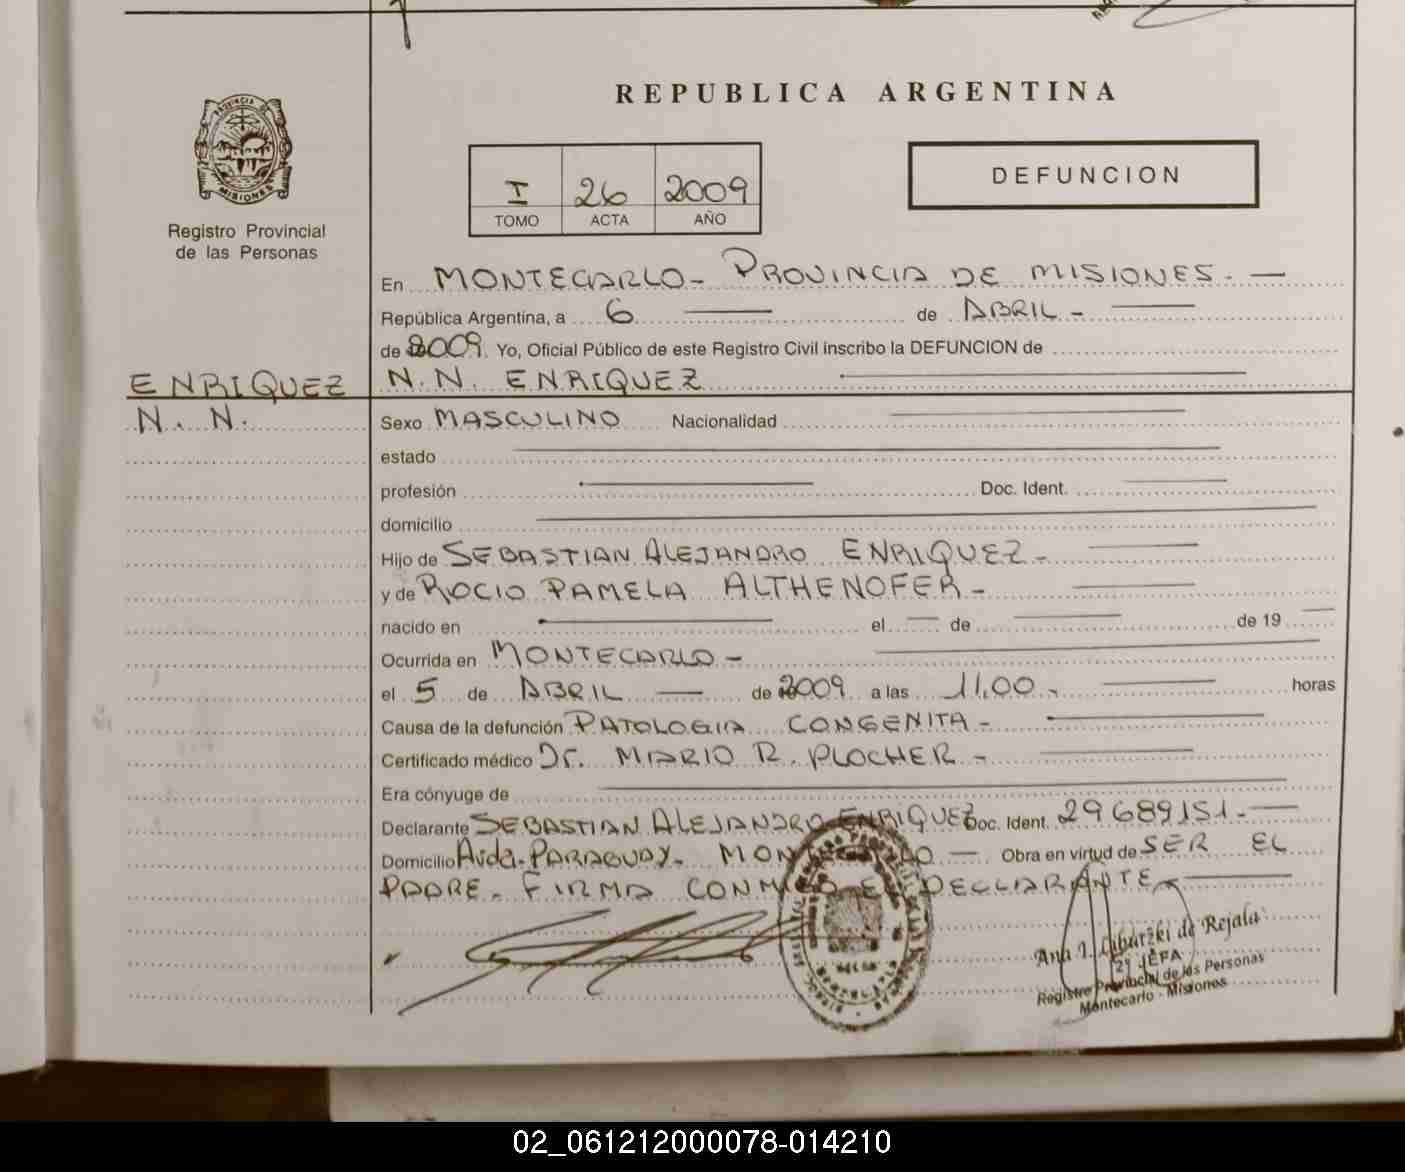 REPUBLICA ARGENTINA
PROVINCIA DE MISIONES
Registro Provincial
de las Personas
I 26 2009
TOMO ACTA AÑO
DEFUNCION
En MONTECARLO - PROVINCIA DE MISIONES. —
República Argentina, a 6 — de ABRIL -
de 2009. Yo, Oficial Público de este Registro Civil inscribo la DEFUNCION de
ENRIQUEZ N.N. ENRIQUEZ
N. N. Sexo MASCULINO Nacionalidad
estado
profesión Doc. Ident.
domicilio
Hijo de SEBASTIAN ALEJANDRO ENRIQUEZ -
y de ROCIO PAMELA ALTHENOFER -
nacido en el — de — de 19 —
Ocurrida en MONTECARLO -
el 5 de ABRIL — de 2009 a las 11,00. — horas
Causa de la defunción PATOLOGIA CONGENITA -
Certificado médico Dr. MARIO R. PLOCHER -
Era cónyuge de
Declarante SEBASTIAN ALEJANDRO ENRIQUEZ Doc. Ident. 29689151. —
Domicilio Avda. PARAGUAY - MONTECARLO — Obra en virtud de SER EL
PADRE - FIRMA CONMIGO EL DECLARANTE -
Ana I. de Rejala
2º JEFA
Registro Provincial de las Personas
Montecarlo - Misiones
02_061212000078-014210